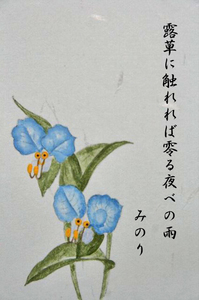 露草に触れれば零る夜べの雨
みのり